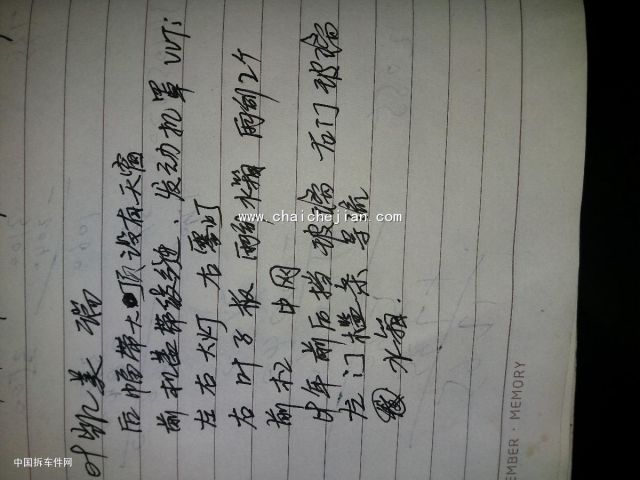 叶凯美 瑞
后幅带大顶没有天窗
前机盖带缓缝、发动机罩 VVTi
左右大灯 右雾灯
右叶子板 两个水箱 两剑2个
前杠 中网
中年前后挡玻璃 右门玻璃
左门槛条 导航
水箱.
EMBER · MEMORY
www.chaichejian.com
中国拆车件网